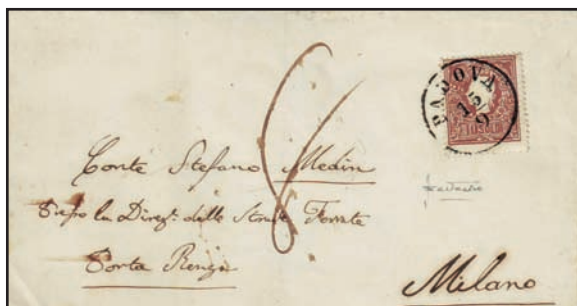 PADOVA
15/9
6
Conte Stefano Medin
Presso la Direz.e delle Strade Ferrate
Porta Renza
Milano